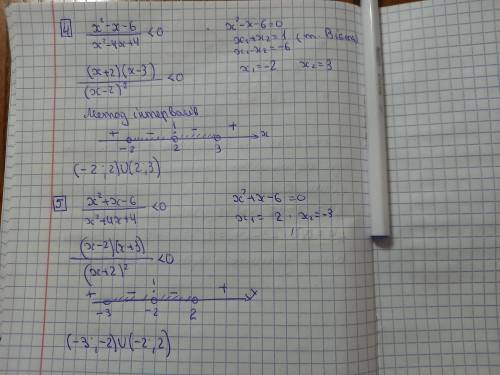 4 (x²-x-6)/(x²-4x+4) < 0
x²-x-6=0
x₁+x₂=1 (т. Вієта)
x₁·x₂=-6
x₁=-2 x₂=3
((x+2)(x-3))/(x-2)² < 0
Метод інтервалів
+ - - + x
-2 2 3
(-2;2)∪(2,3)
5 (x²+x-6)/(x²+4x+4) < 0
x²+x-6=0
x₁=2 x₂=-3
((x-2)(x+3))/(x+2)² < 0
+ - - + x
-3 -2 2
(-3;-2)∪(-2,2)